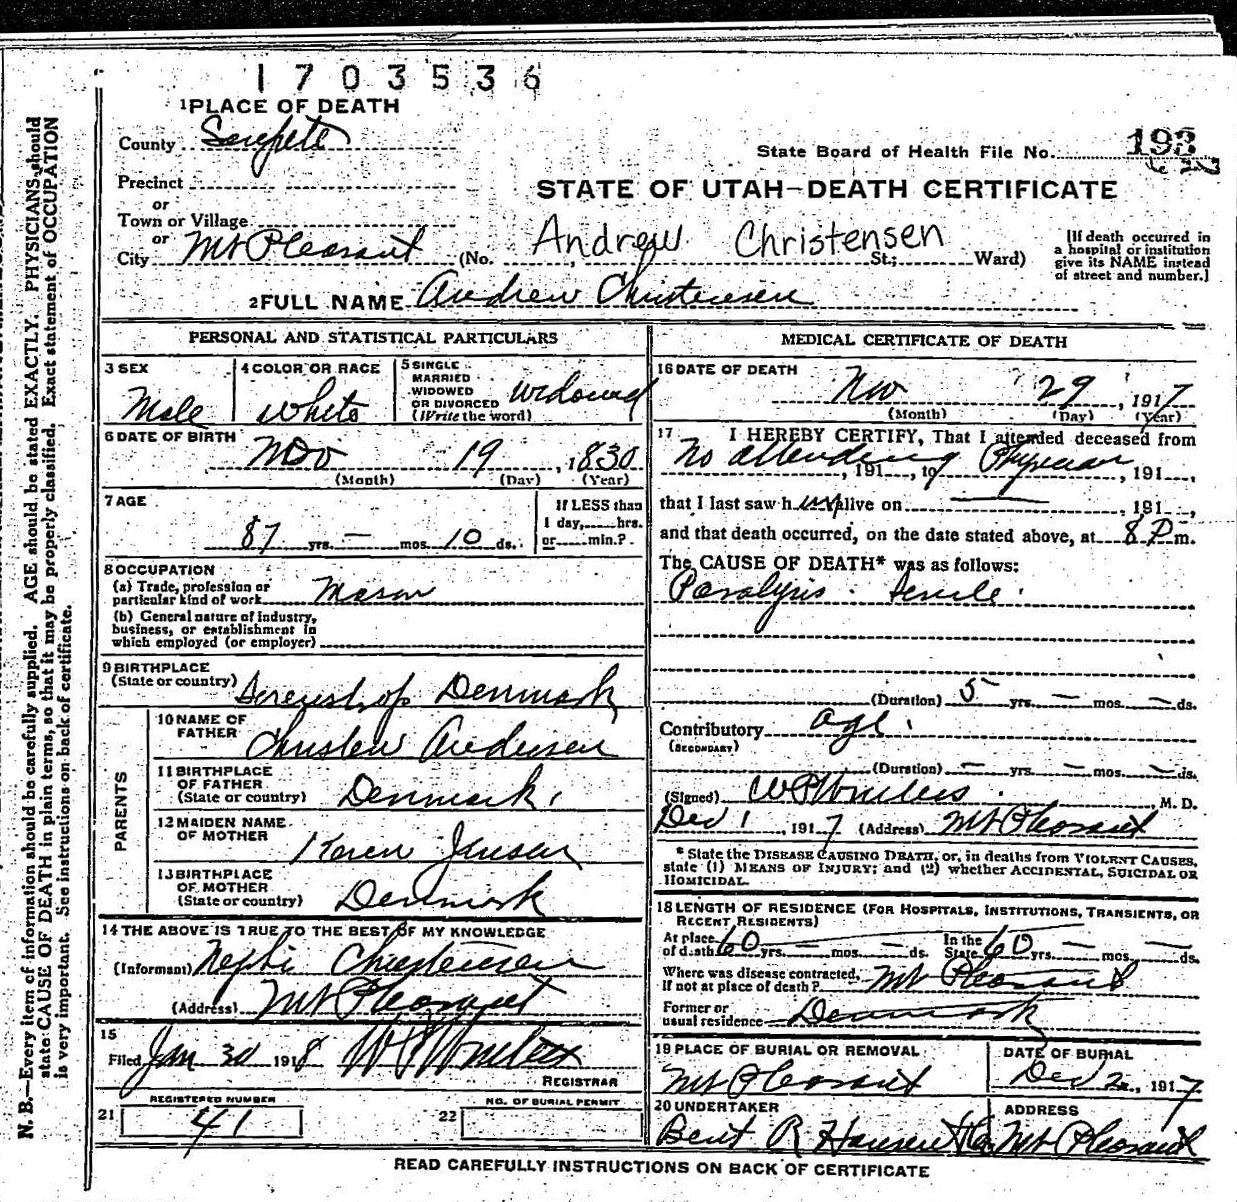 1703536
1 PLACE OF DEATH
County Sanpete
State Board of Health File No. 193
Precinct
or
STATE OF UTAH—DEATH CERTIFICATE
Town or Village
or
City Mt Pleasant (No. Andrew Christensen St.; Ward)
[If death occurred in
a hospital or institution
give its NAME instead
of street and number.]
2 FULL NAME Andrew Christensen
PERSONAL AND STATISTICAL PARTICULARS
3 SEX
Male
4 COLOR OR RACE
White
5 SINGLE
MARRIED
WIDOWED
OR DIVORCED
(Write the word)
Widowed
6 DATE OF BIRTH
Nov 19, 1830
(Month) (Day) (Year)
7 AGE
87 yrs. — mos. 10 ds.
If LESS than
1 day, hrs.
or min.?
8 OCCUPATION
(a) Trade, profession or
particular kind of work Mason
(b) General nature of industry,
business, or establishment in
which employed (or employer)
9 BIRTHPLACE
(State or country) Denmark
PARENTS
10 NAME OF
FATHER
Christen Andersen
11 BIRTHPLACE
OF FATHER
(State or country) Denmark
12 MAIDEN NAME
OF MOTHER
Karen Jensen
13 BIRTHPLACE
OF MOTHER
(State or country) Denmark
14 THE ABOVE IS TRUE TO THE BEST OF MY KNOWLEDGE
(Informant) Nephi Christensen
(Address) Mt Pleasant
15
Filed Jan 30 1918
REGISTRAR
REGISTERED NUMBER
21 41
NO. OF BURIAL PERMIT
22
MEDICAL CERTIFICATE OF DEATH
16 DATE OF DEATH
Nov 29, 1917
(Month) (Day) (Year)
17 I HEREBY CERTIFY, That I attended deceased from
No attending, 191, to Physician, 191,
that I last saw h im alive on —, 191,
and that death occurred, on the date stated above, at 8 P m.
The CAUSE OF DEATH* was as follows:
Paralysis. Senile.
(Duration) 5 yrs. — mos. — ds.
Contributory age.
(SECONDARY)
(Duration) — yrs. — mos. — ds.
(Signed) , M. D.
Dec 1, 1917 (Address) Mt Pleasant
* State the DISEASE CAUSING DEATH, or, in deaths from VIOLENT CAUSES,
state (1) MEANS OF INJURY; and (2) whether ACCIDENTAL, SUICIDAL OR
HOMICIDAL.
18 LENGTH OF RESIDENCE (FOR HOSPITALS, INSTITUTIONS, TRANSIENTS, OR
RECENT RESIDENTS)
At place
of death 60 yrs. — mos. — ds.
In the
State 60 yrs. — mos. — ds.
Where was disease contracted,
If not at place of death? Mt Pleasant
Former or
usual residence Denmark
19 PLACE OF BURIAL OR REMOVAL
Mt Pleasant
DATE OF BURIAL
Dec 2, 1917
20 UNDERTAKER
Bent R Hansen
ADDRESS
Mt Pleasant
READ CAREFULLY INSTRUCTIONS ON BACK OF CERTIFICATE
N. B.—Every item of information should be carefully supplied. AGE should be stated EXACTLY. PHYSICIANS should
state CAUSE OF DEATH in plain terms, so that it may be properly classified. Exact statement of OCCUPATION
is very important. See instructions on back of certificate.